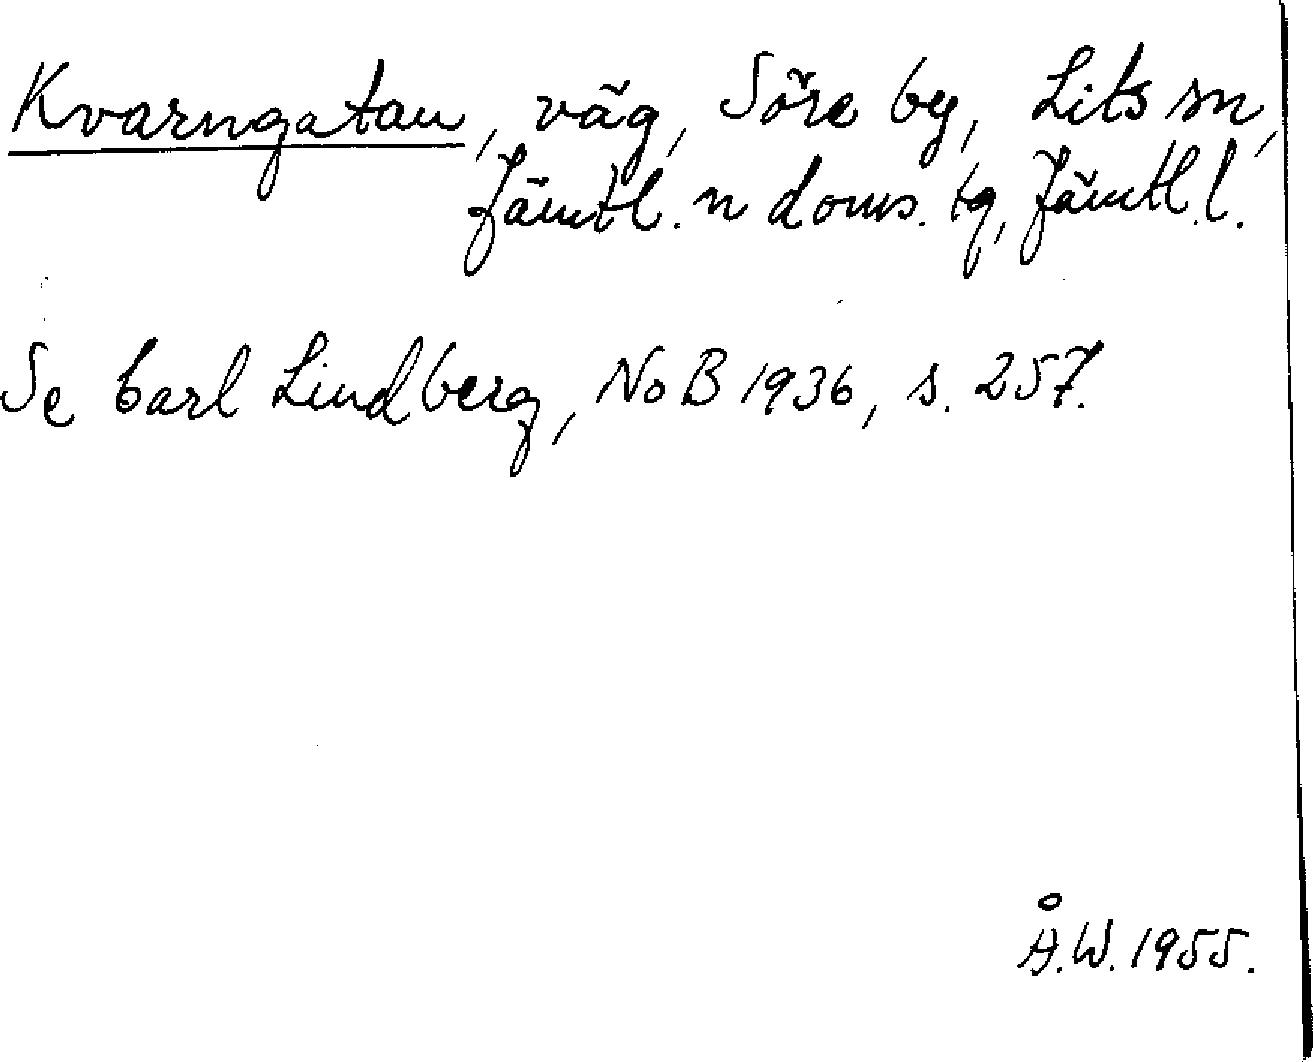 Kvarngatan, väg, Söre by, Lits sn,
Jämtl. n doms. tg, Jämtl. l.
Se Carl Lindberg, NoB 1936, s. 257.
Å.W. 1955.